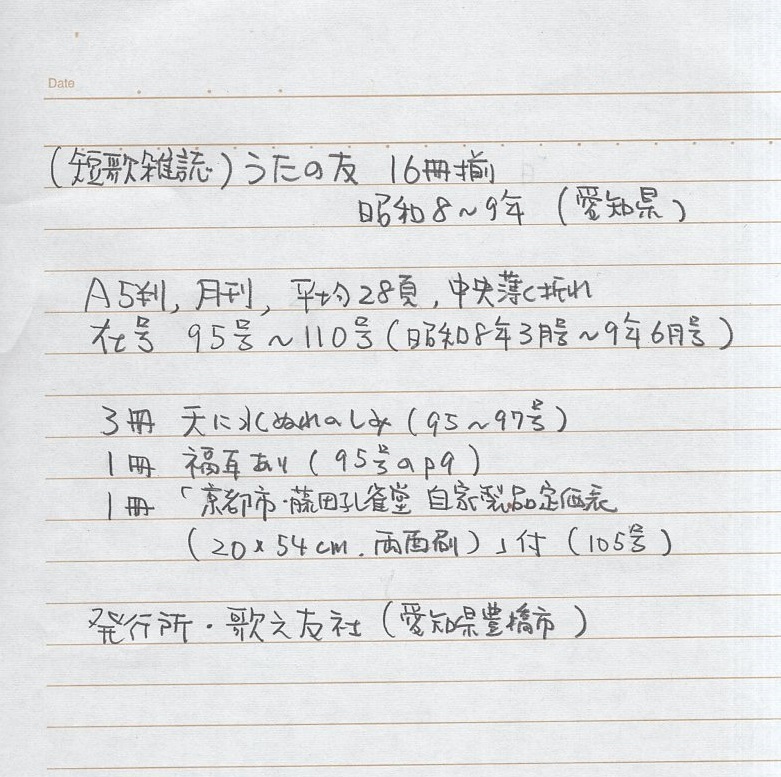 Date
(短歌雑誌)うたの友 16冊揃
昭和8~9年 (愛知県)
A5判, 月刊, 平均28頁, 中央薄く折れ
在号 95号~110号(昭和8年3月号~9年6月号)
3冊 天に水ぬれのしみ(95~97号)
1冊 福耳あり(95号のp9)
1冊 「京都市・藤田孔雀堂 自家製品定価表
(20×54cm.両面刷)」付(105号)
発行所・歌之友社(愛知県豊橋市)